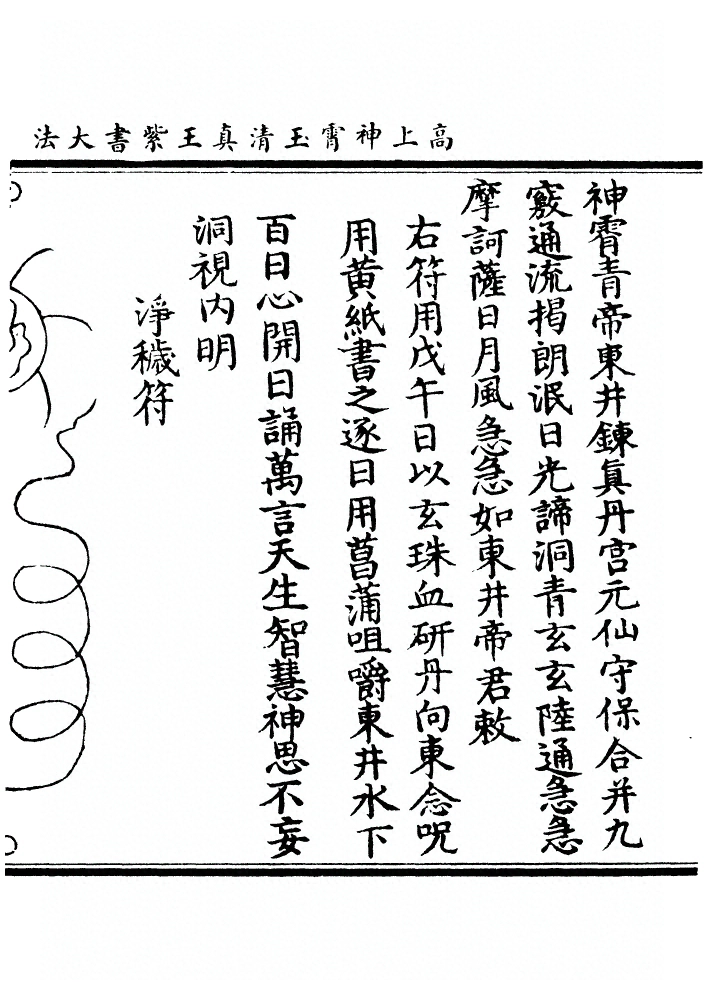 高上神霄玉清真王紫書大法
神霄青帝東井鍊真丹宫元仙守保合并九
竅通流揭朗泯日光諦洞青玄玄陸通急急
摩訶薩日月風急急如東井帝君敕
右符用戊午日以玄珠血研丹向東念呪
用黄紙書之逐日用菖蒲咀嚼東井水下
百日心開日誦萬言天生智慧神思不妄
洞視内明
淨穢符